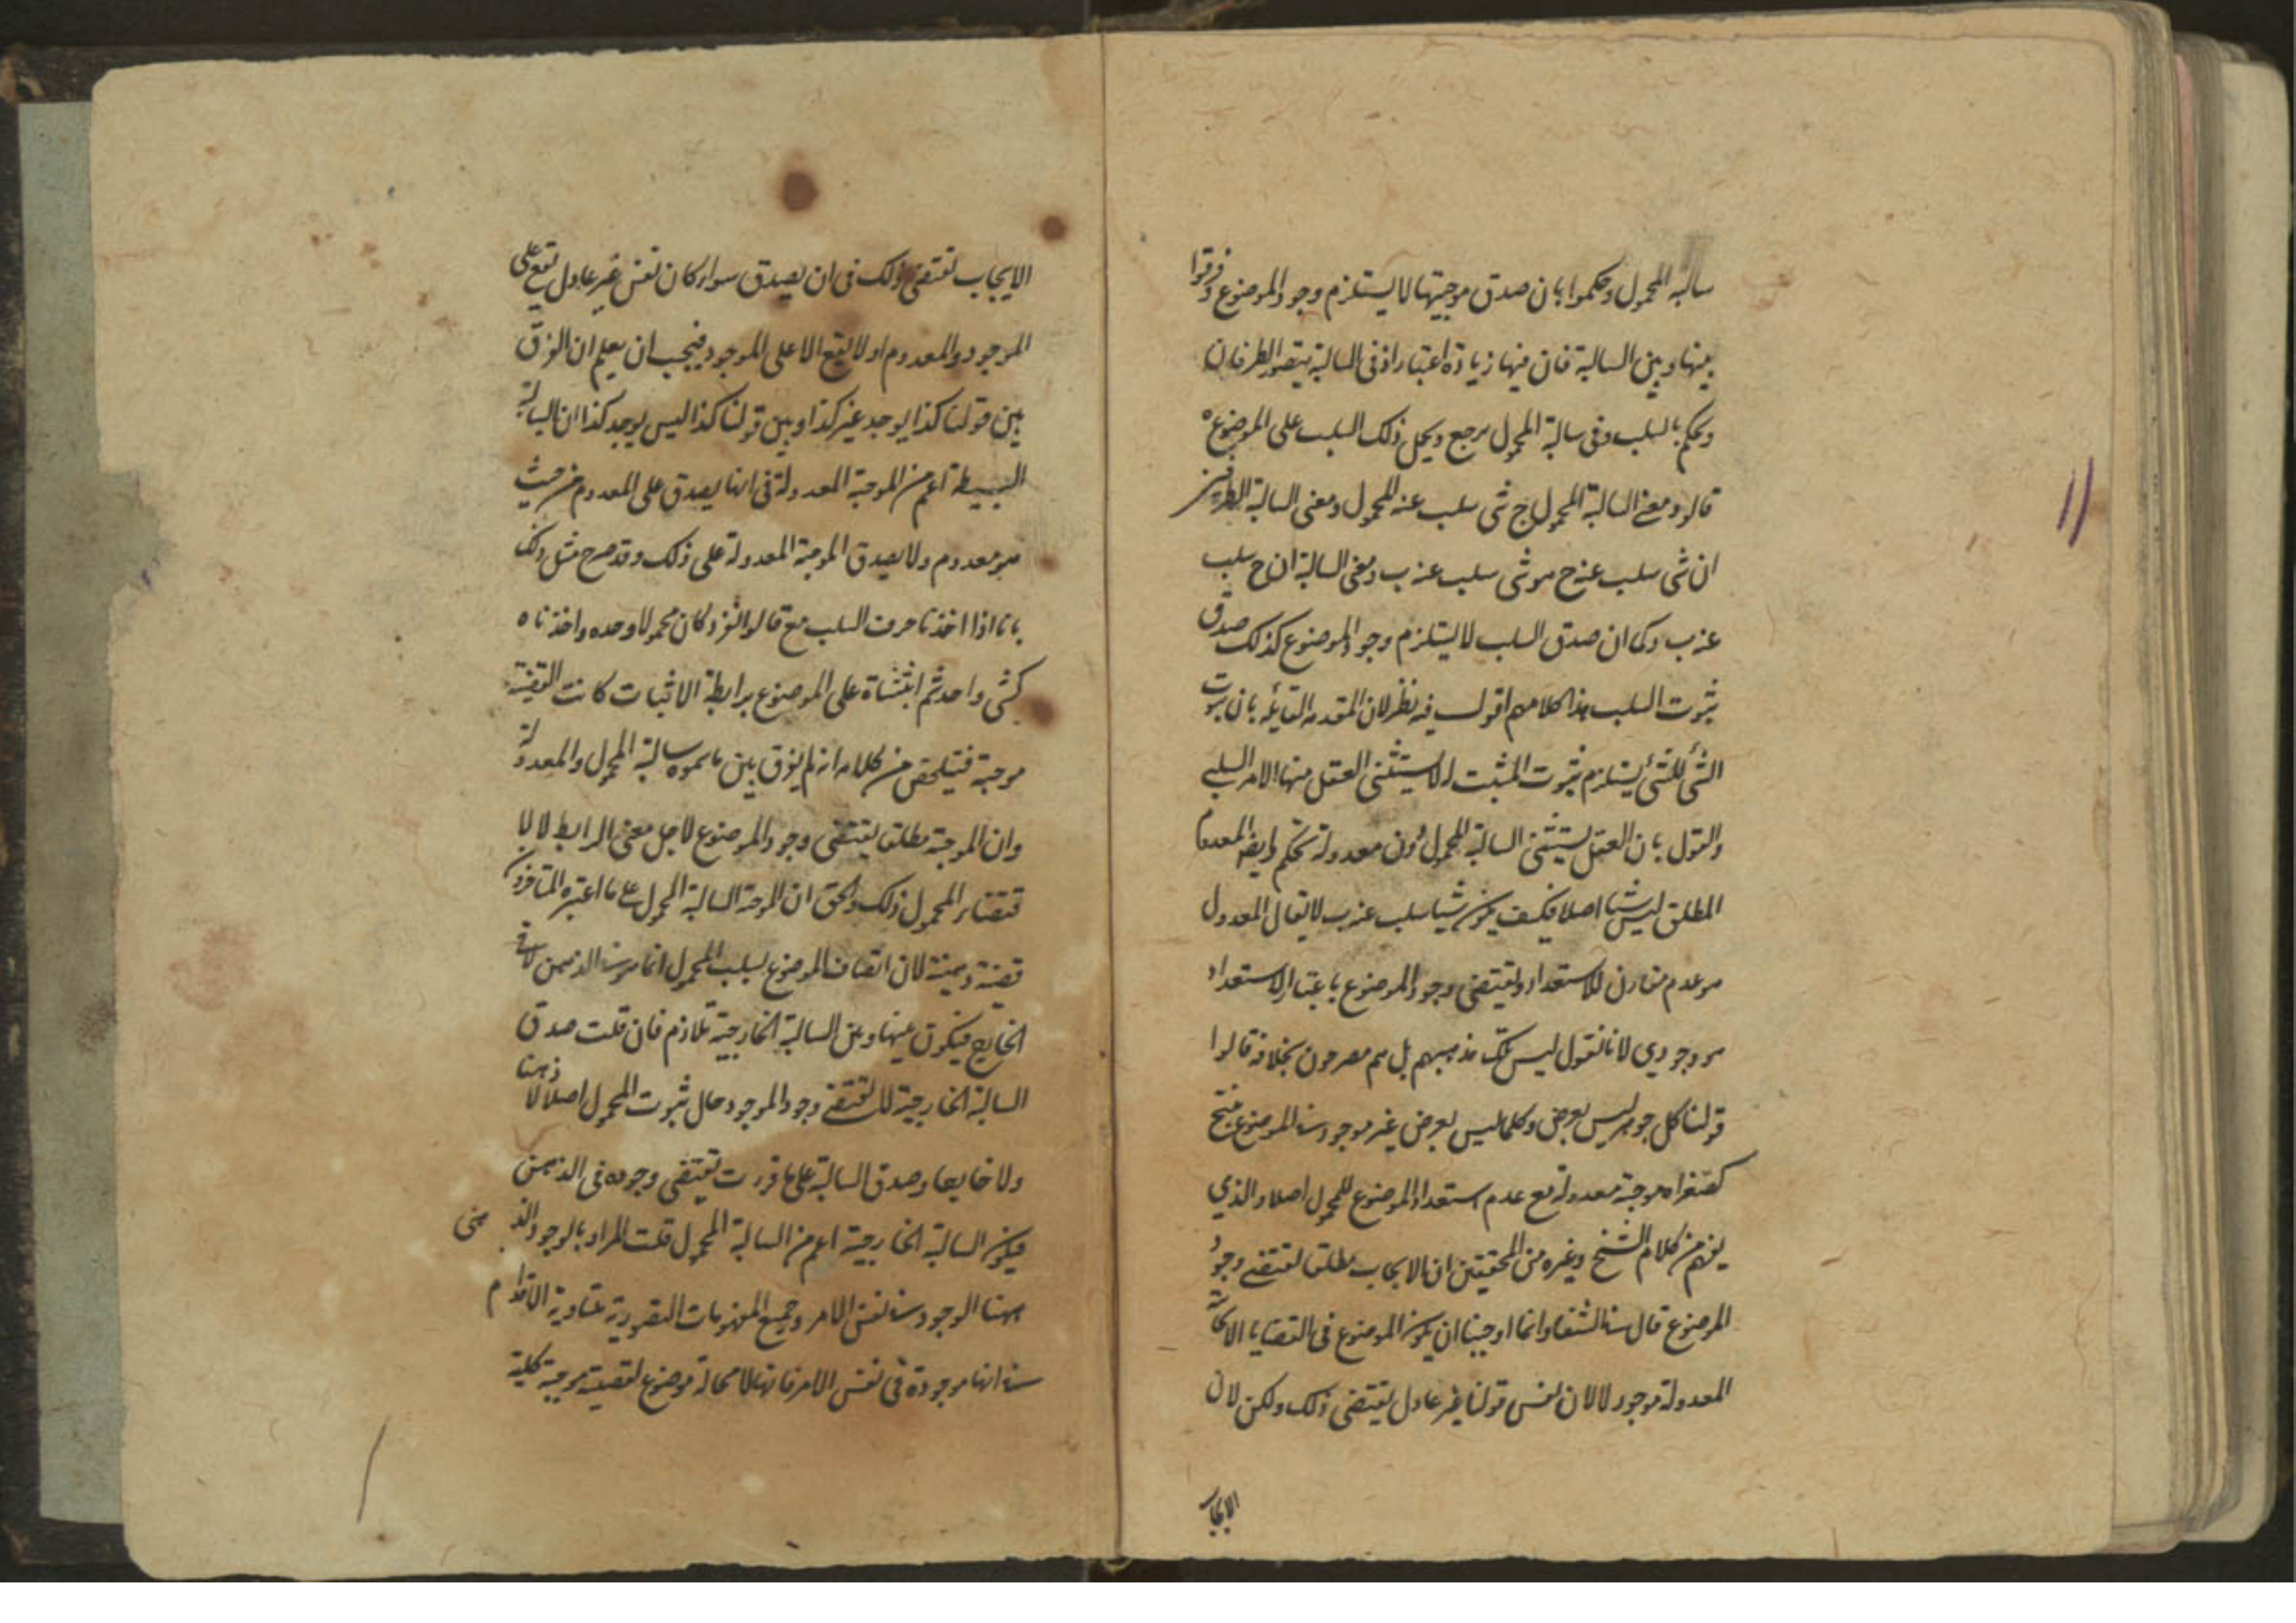 سالبة المحمول وحكموا بان صدق موجبتها لا يستلزم وجود الموضوع وفرقوا
بينها وبين السالبة فان فيها زيادة اعتبار اذ فى السالبة يتصور الطرفان
ويحكم بالسلب وفى سالبة المحمول يرجع ويحمل ذلك السلب على الموضوع
قالوا ومعنى السالبة المحمول ج شى سلب عنه المحمول ومعنى السالبة الطرفين
ان شى سلب عنه ج هو شى سلب عنه ب ومعنى السالبة ان ج سلب
عنه ب وكما ان صدق السلب لا يستلزم وجود الموضوع كذلك صدق
ثبوت السلب هذا كلامهم اقول فيه نظر لان المقدمة القائلة بان ثبوت
الشئ للشئ يستلزم ثبوت المثبت له لا يستثنى العقل منها الامر السلبى
والقول بان العقل يستثنى السالبة المحمول دون معدولة تحكم وايضا المعدوم
المطلق ليس شيا اصلا فكيف يكون شيا سلب عنه ب لا يقال المعدول
هو عدم مقارن للاستعداد ويقتضى وجود الموضوع باعتبار الاستعداد
هو وجودي لانا نقول ليس تلك مذهبهم بل هم مصرحون بخلافه قالوا
قولنا كل جوهر ليس بعرض وكلما ليس بعرض غير موجود فى الموضوع ينتج
كصغراه موجبة معدولة مع عدم استعداد الموضوع للمحمول اصلا والذي
يفهم من كلام الشيخ وغيره من المحققين ان الايجاب مطلقا يقتضى وجود
الموضوع قال فى الشفا وانما اوجبنا ان يكون الموضوع فى القضايا الايجابية
المعدولة موجود لا لان نفس قولنا غير عادل يقتضى ذلك ولكن لان
الايجاب
الايجاب يقتضى ذلك فى ان يصدق سواء كان نفس غير عادل يقع على
الموجود والمعدوم او لا يقع الا على الموجود فيجب ان يعلم ان الفرق
بين قولنا كذا يوجد غير كذا وبين قولنا كذا ليس يوجد كذا ان السالبة
البسيطة اعم من الموجبة المعدولة فى انها يصدق على المعدوم من حيث
هو معدوم ولا يصدق الموجبة المعدولة على ذلك وقد صرح مثل ذلك
بانا اذا اخذنا حرف السلب مع كان محمولا وحده واخذناه
كشى واحد ثم اثبتناه على الموضوع برابطة الاثبات كانت القضية
موجبة فيتلخص من كلامه انه لم يفرق بين ما سموه سالبة المحمول والمعدولة
وان الموجبة مطلقا يقتضى وجود الموضوع لاجل معنى الرابط لا لا
قتضاء المحمول ذلك والحق ان الموجبة السالبة المحمول على ما اعتبره المتاخرون
قضية ذهنية لان اتصاف الموضوع بسلب المحمول انما هو فى الذهن لا فى
الخارج فيكون بينها وبين السالبة الخارجية تلازم فان قلت صدق
السالبة الخارجية لا يقتضى وجود الموجود حال ثبوت المحمول اصلا لا ذهنا
ولا خارجا وصدق السالبة على ما قررت يقتضى وجوده فى الذهن
فيكون السالبة الخارجية اعم من السالبة المحمول قلت المراد بالوجود الذهنى
ههنا الوجود فى نفس الامر وجميع المفهومات التصورية متساوية الاقدام
فى انها موجودة فى نفس الامر فانها لا محالة موضوع لقضية موجبة كلية